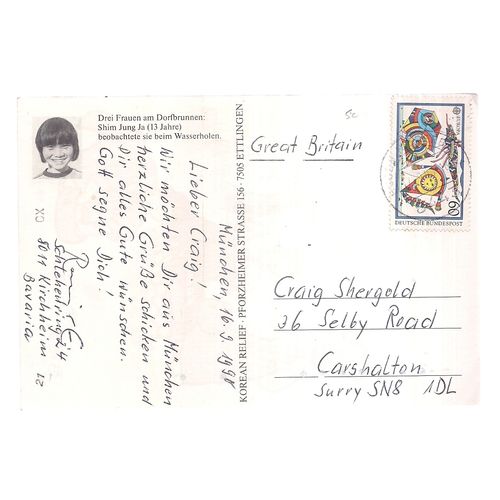 Drei Frauen am Dorfbrunnen:
Shim Jung Ja (13 Jahre)
beobachtete sie beim Wasserholen.
München, 16.9.1990
Lieber Craig!
Wir möchten Dir aus München
herzliche Grüße schicken und
Dir alles Gute wünschen.
Gott segne Dich!
8011 Kirchheim
Bavaria
KOREAN RELIEF · PFORZHEIMER STRASSE 156 · 7505 ETTLINGEN
Great Britain
60
DEUTSCHE BUNDESPOST
Craig Shergold
36 Selby Road
Carshalton
Surry SN8 1DL